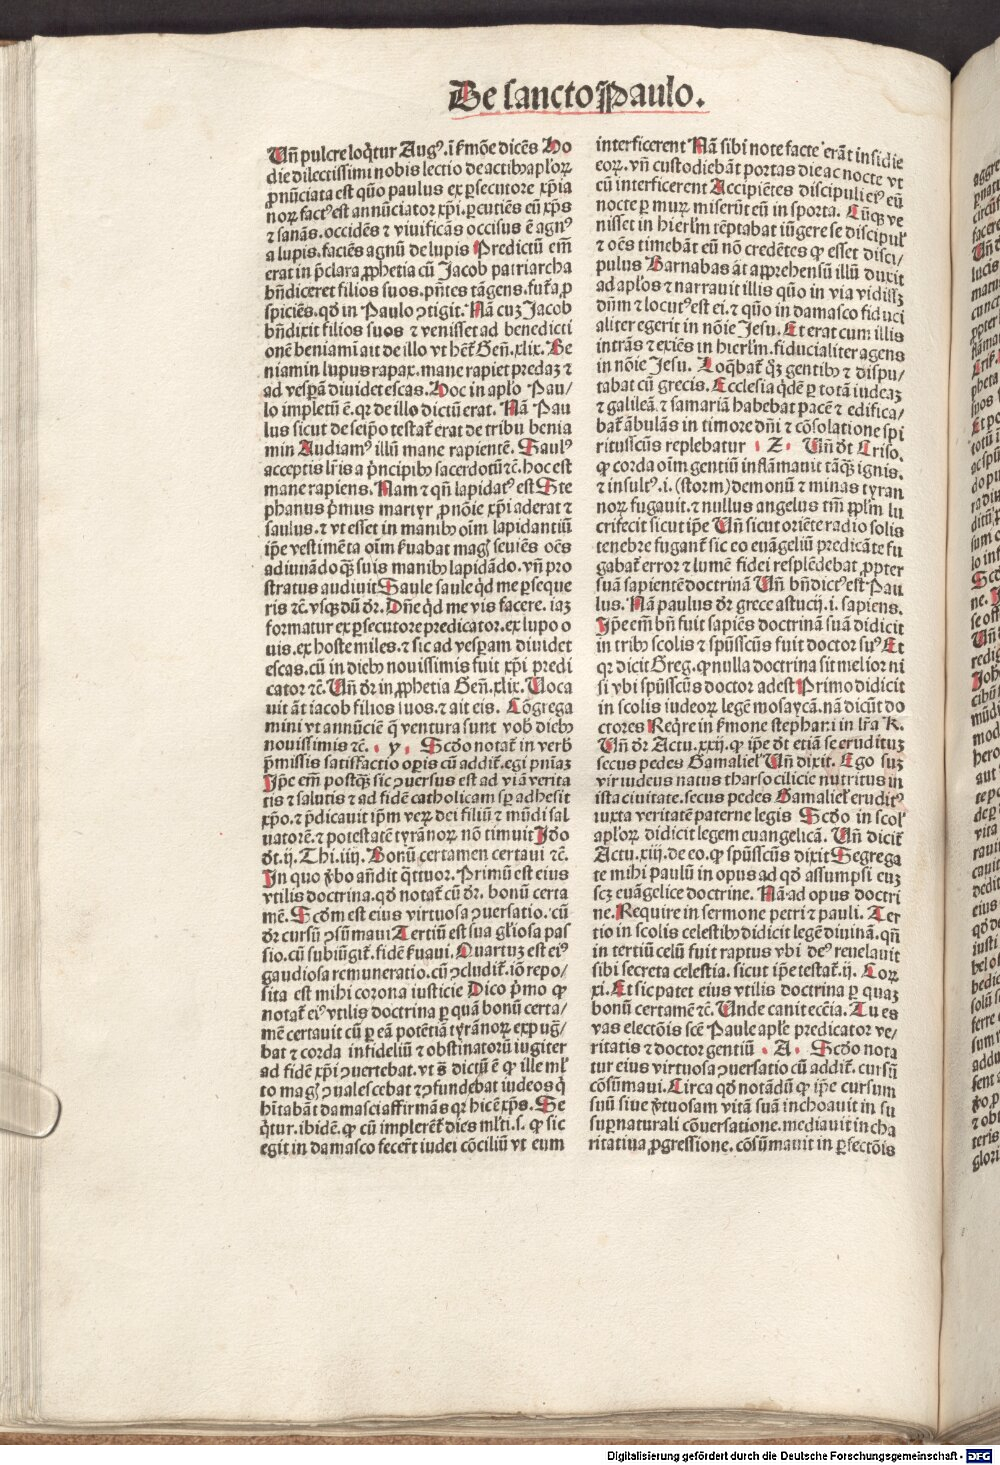 De sancto Paulo.
Uñ pulcre loq̄tur Augꝰ. ī ẜmōe dicēs Ho
die dilectissimi nobis lectio de actibꝫ apl'oꝝ
ꝓnūciata est qūo paulus ex ꝑsecutore xp̄ia
noꝝ factꝰ est annūciator xp̄i. ꝑcutiēs eū xp̄s
⁊ sanās. occidēs ⁊ viuificās occisus ē agnꝰ
a lupis. faciēs agnū de lupis Predictū em̄
erat in p̄clara ꝓphetia cū Jacob patriarcha
bn̄diceret filios suos. pn̄tes tāgens. fut̄a ꝓ
spiciēs. qd̄ in Paulo ↄtigit. Nā cuꝫ Jacob
bn̄dixit filios suos ⁊ venisset ad benedicti
onē beniamī ait de illo vt hēt̄ Geñ. xlix. Be
niamin lupus rapax. mane rapiet predaꝫ ⁊
ad vesꝑā diuidet escas. Hoc in apl'o Pau-
lo impletū ē. qꝛ de illo dictū erat. Nā Pau
lus sicut de seip̄o testat̄ erat de tribu benia
min Audiamꝰ illū mane rapientē. Saulꝰ
acceptis lr̄is a p̄ncipibꝫ sacerdotū ⁊c̄. hoc est
mane rapiens. Nam ⁊ qn̄ lapidatꝰ est Ste
phanus p̄mus martyr ꝓ nōie xp̄i aderat ⁊
saulus. ⁊ vt esset in manibꝫ oīm lapidantiū
ip̄e vestimēta oīm ẜuabat magꝭ seuiēs oēs
adiuuādo q̄ꝫ suis manibꝫ lapidādo. vn̄ pro
stratus audiuit Saule saule q̄d me ꝑseque
ris ⁊c̄. vsqꝫ dū dꝛ. Dn̄e q̄d me vis facere. iaꝫ
formatur ex ꝑsecutore predicator. ex lupo o
uis. ex hoste miles. ⁊ sic ad vesꝑam diuidet
escas. cū in diebꝫ nouissimis fuit xp̄i predi
cator ⁊c̄. Uñ dꝛ in ꝓphetia Geñ. xlix. Uoca
uit āt iacob filios suos ⁊ ait eis. Cōgrega
mini vt annūciē q̄ ventura sunt vob̄ diebꝫ
nouissimis ⁊c̄. · y · Scd̄o notat̄ in verb̄
p̄missis satisfactio oꝑis cū addit̄. egi pn̄iaꝫ
Ip̄e em̄ postq̄ꝫ sic ↄuersus est ad viā verita
tis ⁊ salutis ⁊ ad fidē catholicam sꝑ adhesit
xp̄o. ⁊ p̄dicauit ip̄m veꝝ dei filiū ⁊ mūdi sal
uatorē. ⁊ potestatē tyrānoꝝ nō timuit Id̄o
dt̄. ij. Thi. iiij. Bonū certamen certaui ⁊c̄.
In quo v̄bo añdit q̄ttuor. Primū est eius
vtilis doctrina. qd̄ notat̄ cū dꝛ. bonū certa
mē. Scd̄m est eius virtuosa ↄuersatio. cū
dꝛ cursū ↄsūmaui Tertiū est sua gl'iosa pas
sio. cū subiūgit̄. fidē ẜuaui. Quartuꝫ est eiꝰ
gaudiosa remuneratio. cū ↄcludit̄. iō repo-
sita est mihi corona iusticie Dico p̄mo ꝙ
notat̄ eiꝰ vtilis doctrina ꝑ quā bonū certa-
mē certauit cū ꝑ eā potētiā tyrānoꝝ expug-
bat ⁊ corda infideliū ⁊ obstinatorū iugiter
ad fidē xp̄i ↄuertebat. vt s̄ dictū ē ꝙ ille ml'
to magꝭ ↄualescebat ⁊ ↄfundebat iudeos q̄
hītabāt damasci affirmās qꝛ hic ē xp̄s. Se
q̄tur. ibidē. ꝙ cū implerēt̄ dies ml'ti. s. ꝙ sic
egit in damasco fecert̄ iudei cōciliū vt eum
interficerent Nā sibi note facte erāt insidie
eoꝝ. vn̄ custodiebāt portas die ac nocte vt
eū interficerent Accipiētes discipuli eiꝰ eū
nocte ꝑ muꝝ miserūt eū in sporta. Cūqꝫ ve
nisset in hierl'm tēptabat iūgere se discipul'
⁊ oēs timebāt eū nō credētes ꝙ esset disci-
pulus Barnabas āt apprehensū illū duxit
ad apl'os ⁊ narrauit illis qūo in via vidissꝫ
dn̄m ⁊ locutꝰ est ei. ⁊ qūo in damasco fiduci
aliter egerit in nōie Jesu. Et erat cum illis
intrās ⁊ exiēs in hierl'm. fiducialiter agens
in nōie Jesu. Loq̄bat̄ q̄ꝫ gentibꝫ ⁊ dispu-
tabat cū grecis. Ecclesia q̄dē ꝑ totā iudeaꝫ
⁊ galileā ⁊ samariā habebat pacē ⁊ edifica-
bat̄ ābulās in timore dn̄i ⁊ cōsolatione spi
ritusscūs replebatur · Z · Uñ dt̄ Criso.
ꝙ corda oīm gentiū inflāmauit tāq̄ꝫ ignis.
⁊ insultꝰ. i. (storm) demonū ⁊ minas tyran
noꝝ fugauit. ⁊ nullus angelus tm̄ ppl'm lu
crifecit sicut ip̄e Uñ sicut oriēte radio solis
tenebre fugant̄ sic eo euāgeliū predicāte fu
gabat̄ error ⁊ lumē fidei resplēdebat ꝓpter
suā sapientē doctrinā Uñ bn̄dictꝰ est Pau
lus. Nā paulus dꝛ grece astucij. i. sapiens.
Ip̄e em̄ bn̄ fuit sapiēs doctrinā suā didicit
in tribꝫ scolis ⁊ sp̄ūsscūs fuit doctor suꝰ Et
qꝛ dicit Greg. ꝙ nulla doctrina sit melior ni
si vbi sp̄ūsscūs doctor adest Primo didicit
in scolis iudeoꝝ legē mosaycā. nā dicūt do
ctores Reqͥre in ẜmone stephani in lr̄a K.
Uñ dꝛ Actu. xxij. ꝙ ip̄e dt̄ etiā se erudituꝫ
secus pedes Gamaliel' Uñ dixit. Ego suꝫ
vir iudeus natus tharso cilicie nutritus in
ista ciuitate. secus pedes Gamaliel' eruditꝰ
iuxta veritatē paterne legis Scd̄o in scol'
apl'oꝝ didicit legem euangelicā. Uñ dicit̄
Actu. xiij. de eo. ꝙ sp̄ūsscūs dixit Segrega
te mihi Paulū in opus ad qd̄ assumpsi euꝫ
scꝫ euāgelice doctrine. Nā ad opus doctri
ne. Require in sermone petri ⁊ pauli. Ter
tio in scolis celestibꝫ didicit legē diuinā. qn̄
in tertiū celū fuit raptus vbi deꝰ reuelauit
sibi secreta celestia. sicut ip̄e testat̄. ij. Coꝝ
xi. Et sic patet eius vtilis doctrina ꝑ quaꝫ
bonū certamē ⁊c̄. Unde canit ecc̄ia. Tu es
vas electōis scē Paule apl'e predicator ve-
ritatis ⁊ doctor gentiū · A · Scd̄o nota
tur eius virtuosa ↄuersatio cū addit̄. cursū
cōsūmaui. Circa qd̄ notādū ꝙ ip̄e cursum
suū siue v̄tuosam vitā suā inchoauit in su
suꝑnaturali cōuersatione. mediauit in cha
ritatiua ꝓgressione. cōsūmauit in ꝑfectōis
Digitalisierung gefördert durch die Deutsche Forschungsgemeinschaft - DFG